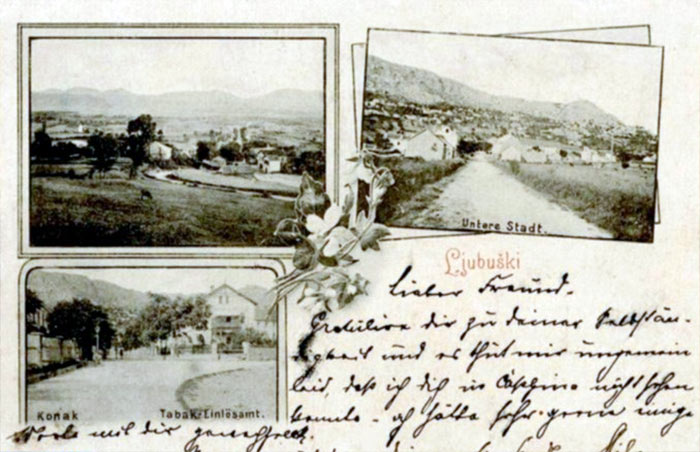 Untere Stadt.
Ljubuški
Lieber Freund.
Gratulire dir zu deiner Selbstän-
digkeit und es thut mir ungemein
leid, daß ich dich in nicht sehen
konnte. hätte sehr gerne einige
Konak
Tabak-Einlösamt.
Worte mit dir gewechselt.